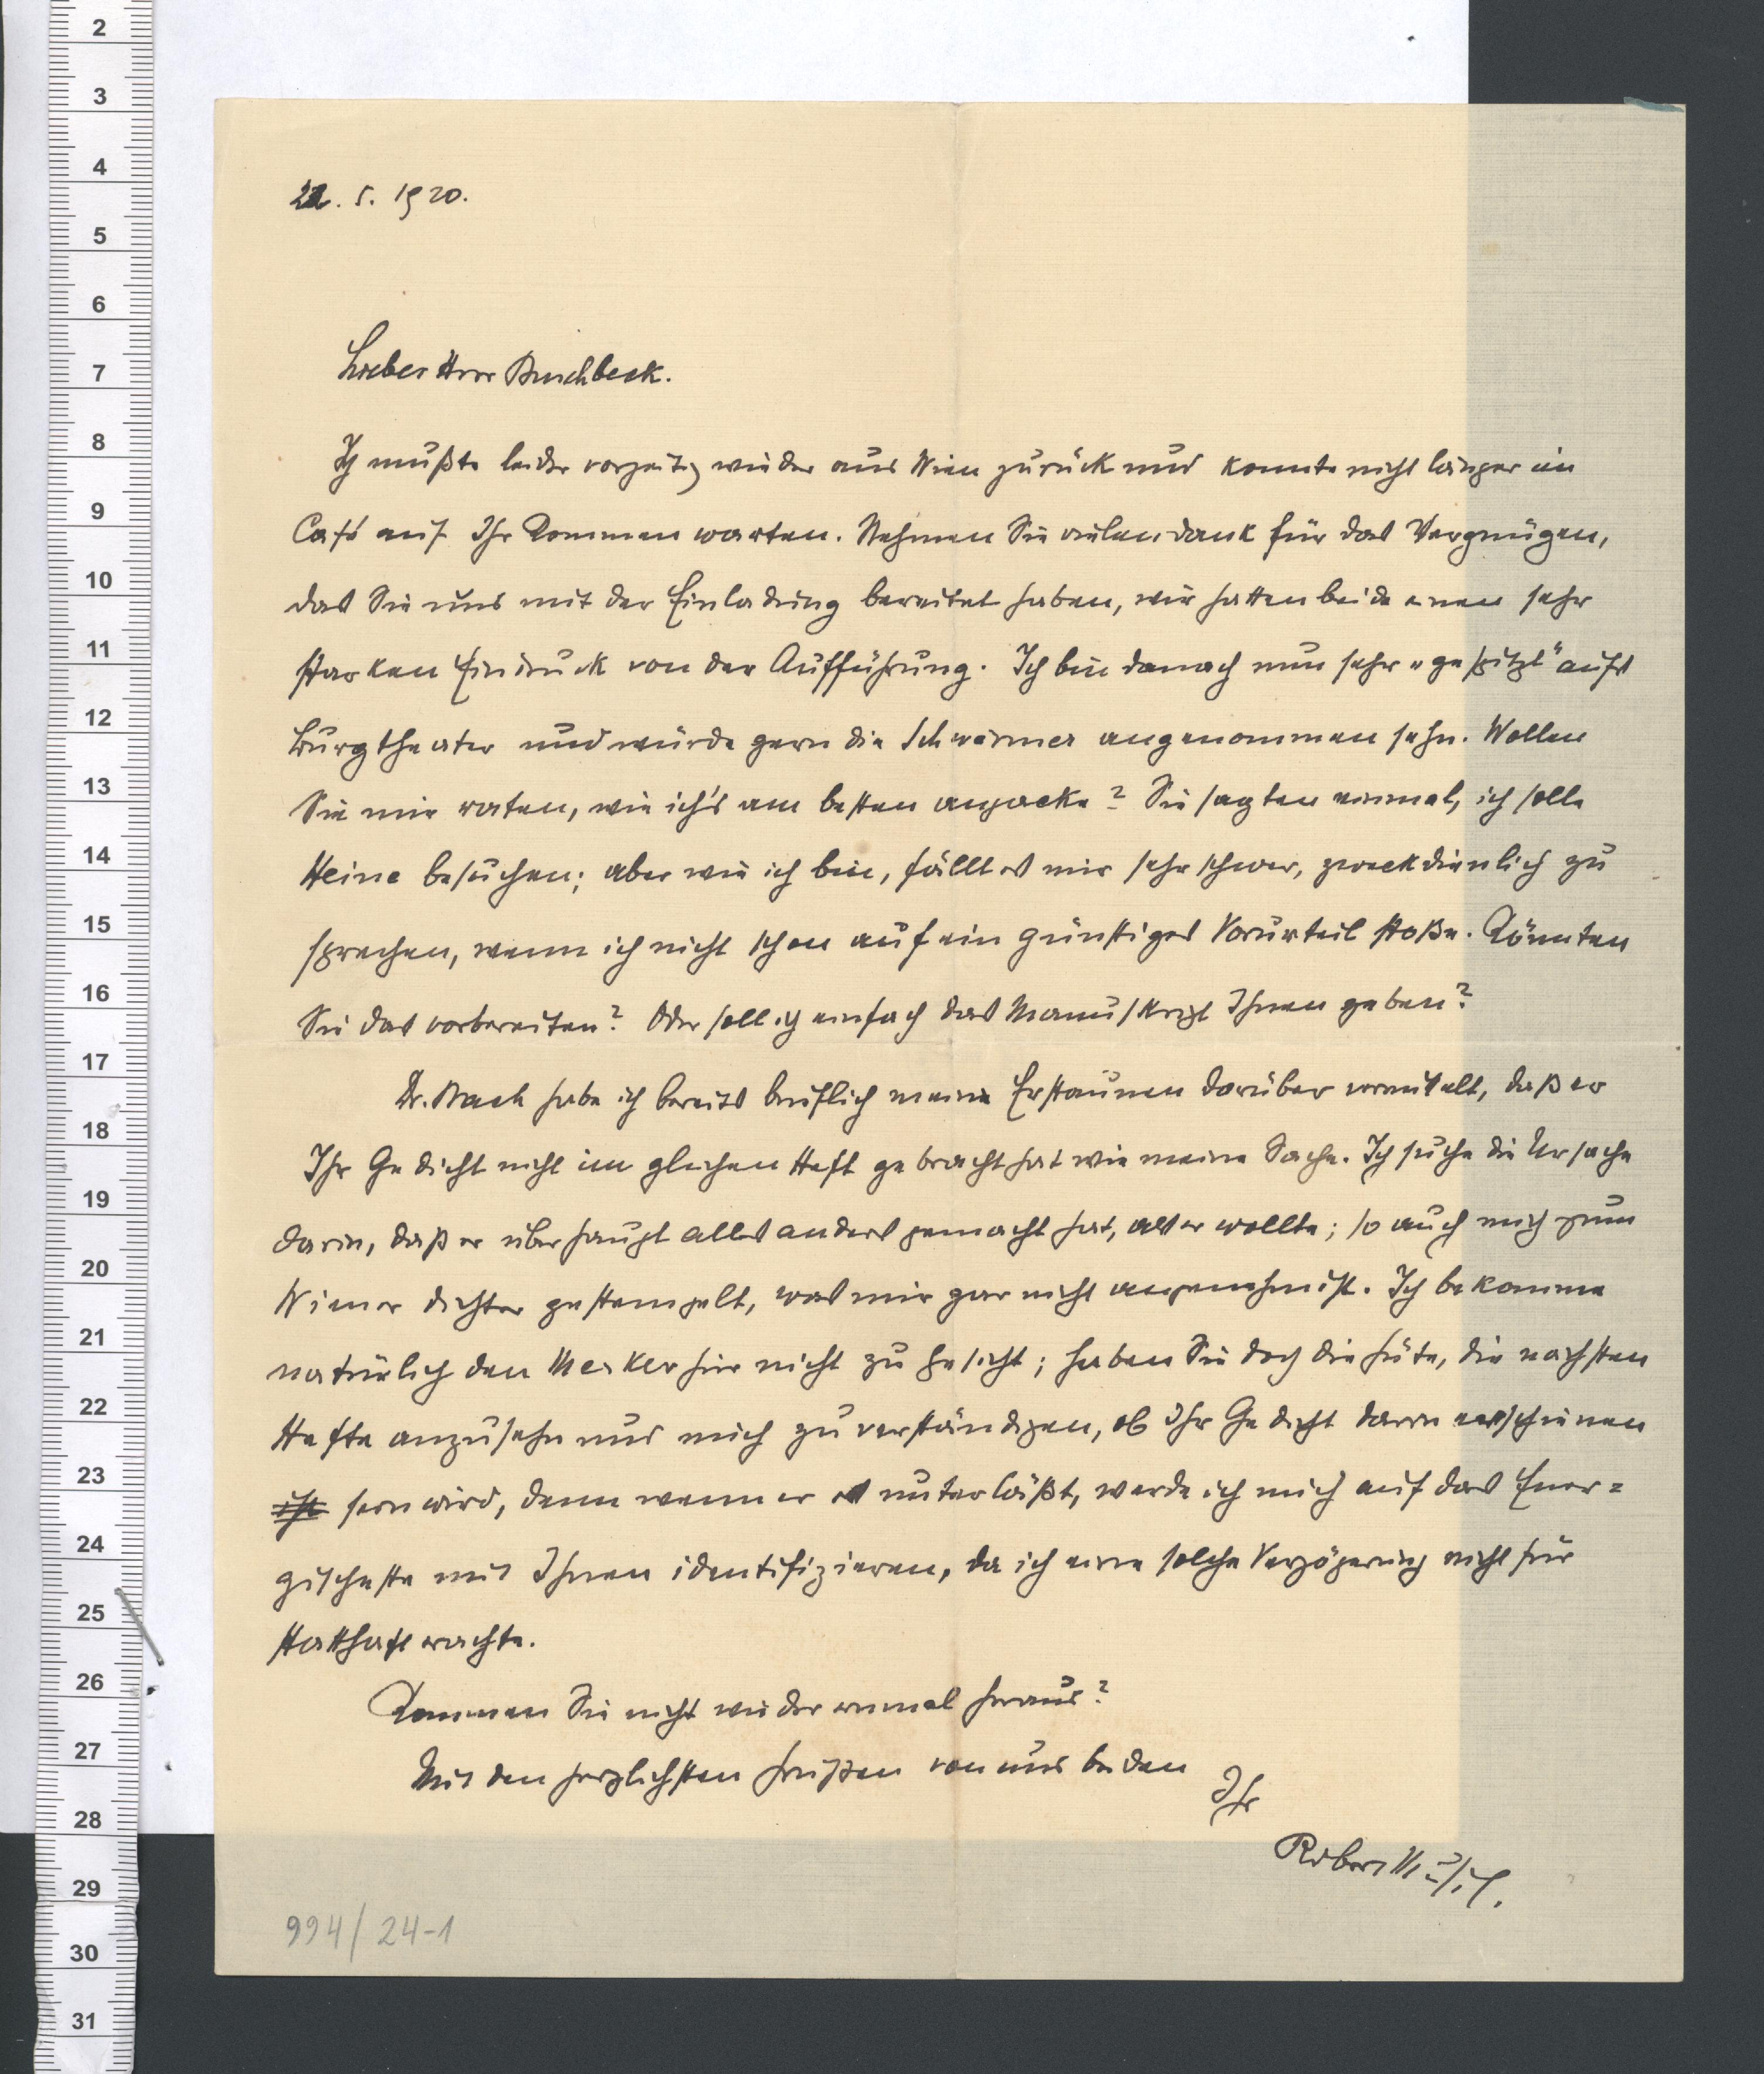 22. 5. 1920.
Lieber Herr Buschbeck.
Ich mußte leider vorzeitig wieder aus Wien zurück und konnte nicht länger im
Café auf Ihr Kommen warten. Nehmen Sie vielen Dank für das Vergnügen,
das Sie uns mit der Einladung bereitet haben, wir hatten beide einen sehr
starken Eindruck von der Aufführung. Ich bin danach nun sehr „gespitzt" aufs
Burgtheater und würde gern die Schwärmer angenommen sehn. Wollen
Sie mir raten, wie ich's am besten anpacke? Sie sagten einmal, ich solle
Heine besuchen; aber wie ich bin, fällt es mir sehr schwer, zweckdienlich zu
sprechen, wenn ich nicht schon auf ein günstiges Vorurteil stoße. Könnten
Sie das vorbereiten? Oder soll ich einfach das Manuskript Ihnen geben?
Dr. Bach habe ich bereits brieflich mein Erstaunen darüber vermittelt, daß er
Ihr Gedicht nicht im gleichen Heft gebracht hat wie meine Sache. Ich suche die Ursache
darin, daß er überhaupt alles anders gemacht hat, als er wollte; so auch mich zum
Wiener Dichter gestempelt, was mir gar nicht angenehm ist. Ich bekomme
natürlich den Merker hier nicht zu Gesicht; haben Sie doch die Güte, die nächsten
Hefte anzusehn und mich zu verständigen, ob Ihr Gedicht darin erschienen
ist sein wird, denn wenn er es unterläßt, werde ich mich auf das Ener=
gischeste mit Ihnen identifizieren, da ich eine solche Verzögerung nicht für
statthaft erachte.
Kommen Sie nicht wieder einmal heraus?
Mit den herzlichsten Grüßen von uns beiden
Ihr
Robert Musil.
994/24-1
2
3
4
5
6
7
8
9
10
11
12
13
14
15
16
17
18
19
20
21
22
23
24
25
26
27
28
29
30
31